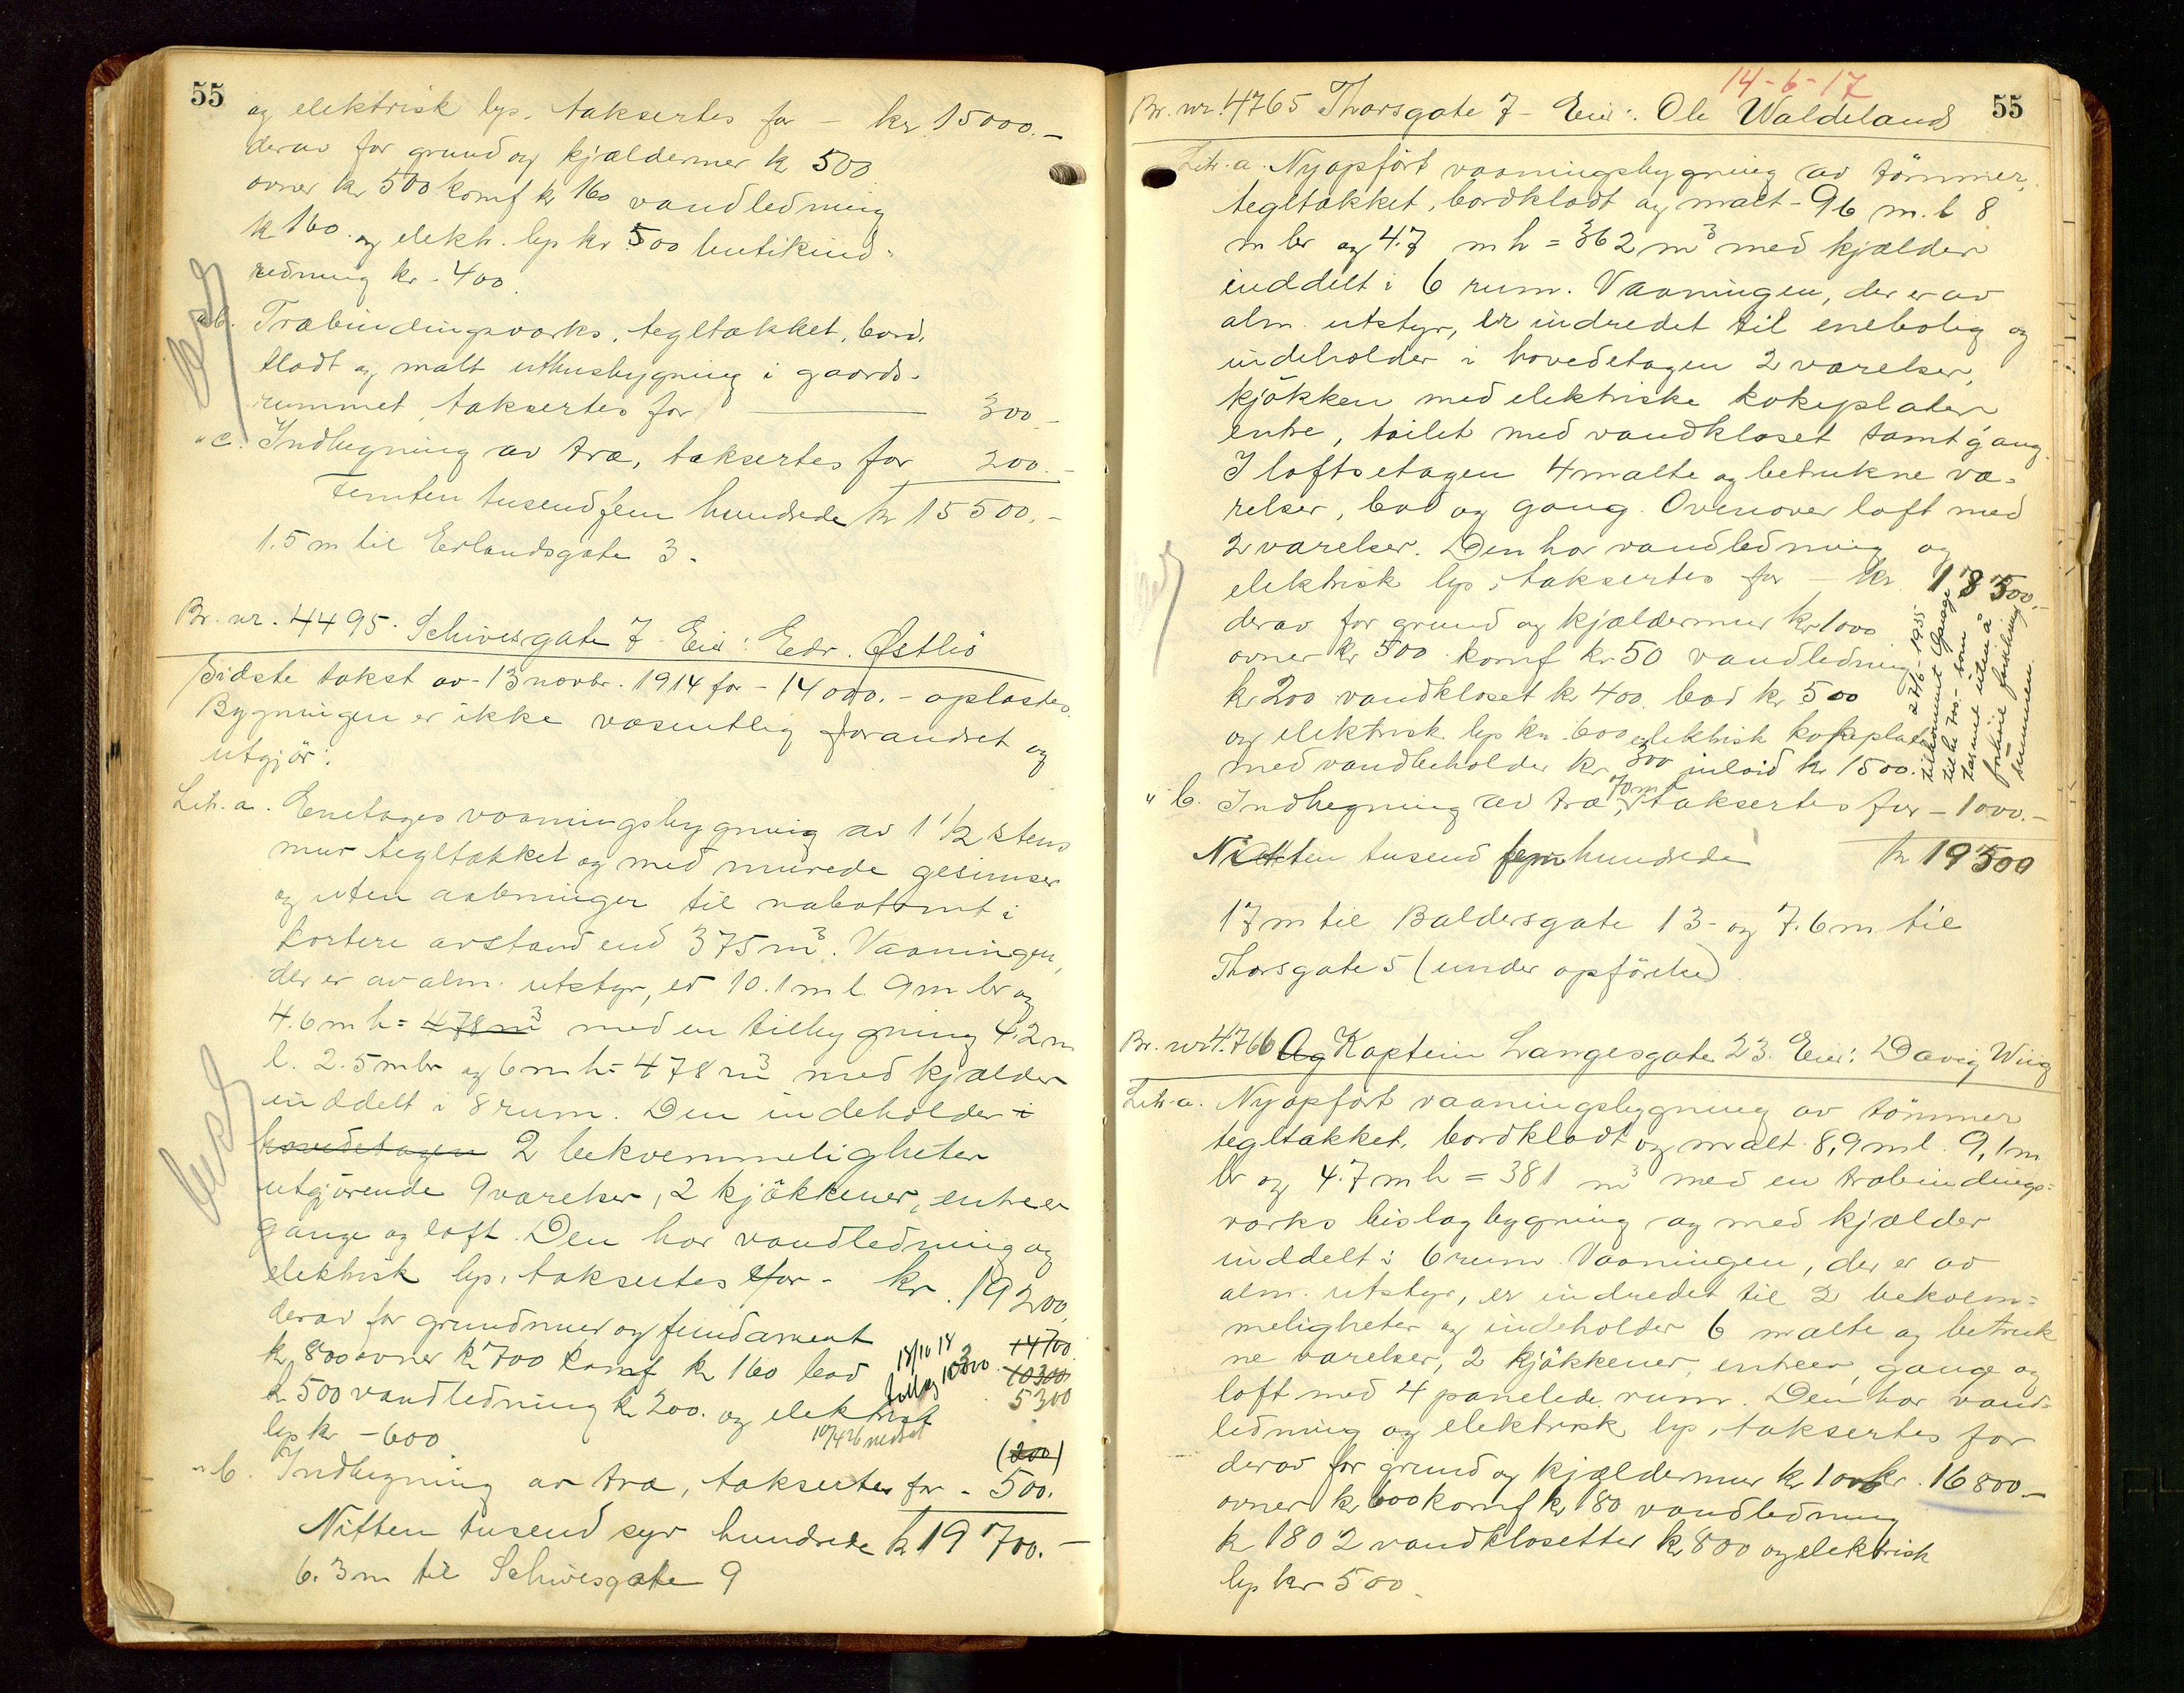 55
og elektrisk lys, taksertes for - kr 15000.-
derav for grund og kjældermur kr 500
ovner kr 500 komf kr 160 vandledning
kr 160. og elektr. lys kr 500 butikind-
redning kr. 400.
"b. Træbindingsværks, teglækket, bord,
klædt og malt uthusbygning i gaards-
rummet, taksertes for 300.-
"c. Indhegning av træ, taksertes for 200.-
Femten tusend fem hundrede kr 15500.-
1.5 m til Erlandsgate 3.
Br. nr. 4495. Schivesgate 7 Eier: Edv. Østliö
Sidste takst av 13 novbr. 1914 for - 14000.- oplæstes.
Bygningen er ikke væsentlig forandret og
utgjør:
Litr. a. Enetages vaaningsbygning av 1 1/2 stens
mur tegltækket og med murede gesimser
og uten aabninger til nabotomt i
kortere avstand end 375 m³. Vaaningen,
der er av alm. utstyr, er 10.1 m l. 9 m br og
4.6 m h = 478 m³ med en tilbygning 4.2 m
l. 2.5 m br og 6 m h = 478 m³ med kjælder
inddelt i 8 rum. Den indeholder i
hovedetagen 2 bekvemmeligheter
utgjørende 9 værelser, 2 kjökkener, entreer
gange og loft. Den har vandledning og
elektrisk lys, taksertes for - kr. 19200,
derav for grundmur og fundament 14700
kr 800 ovner kr 700 komf kr 160 bad 18/10 18 10300
kr 500 vandledning kr 200. og elektrisk 5300
lys kr - 600 (200)
"b. Indhegning av træ, taksertes for - 500.
Nitten tusend syv hundrede kr 19700.-
6.3 m til Schivesgate 9
14-6-17
55
Br. nr. 4765 Thorsgate 7 - Eier: Ole Waldeland
Litr. a. Nyopført vaaningsbygning av tömmer,
tegltækket, bordklædt og malt - 9 6 m. l 8
m br og 4.7 m h = 362 m³ med kjælder
inddelt i 6 rum. Vaaningen, der er av
alm. utstyr, er indredet til enebolig og
indeholder i hovedetagen 2 værelser,
kjökken med elektriske kokeplater
entre, toilet med vandkloset samt gang.
I loftsetagen 4 malte og betrukne væ-
relser, bad og gang. Ovenover loft med
2 værelser. Den har vandledning og
elektrisk lys, taksertes for - kr. 18500.-
derav for grund og kjældermur kr 1000
ovner kr 500 komf kr 50 vandledning
kr 200 vandkloset kr 400. bad kr 500
og elektrisk lys kr. 600 elektrisk kokeplate
med vandbeholder kr 300 inlaid kr 1500.
27/6-1955
tilkommet Garage
til kr. 700.- som
taksert uten å
forhøie forsikrings
summen.
"b. Indhegning av træ, 70 m taksertes for - 1000.-
Nitten tusend fem hundrede kr 19500
17 m til Baldersgate 13 - og 7.6 m til
Thorsgate 5 (under opförelse).
Br. nr 4.766 Og Kaptein Langesgate 23. Eier: Davig Wiig
Litr. a. Nyopført vaaningsbygning av tömmer
tegltækket, bordklædt og malt 8,9 m l. 9,1 m
br og 4.7 m h = 381 m³ med en træbindings-
værks bislagbygning og med kjælder
inddelt i 6 rum. Vaaningen, der er av
alm. utstyr, er indredet til 2 bekvem-
meligheter og indeholder 6 malte og betruk
ne værelser, 2 kjökkener, entreer, gange og
loft med 4 panelede rum. Den har vand-
ledning og elektrisk lys, taksertes for
derav for grund og kjældermur kr 1000 kr. 16800.-
ovner kr 600 komf kr 180 vandledning
kr 180 2 vandklosetter kr 800 og elektrisk
lys kr 500.